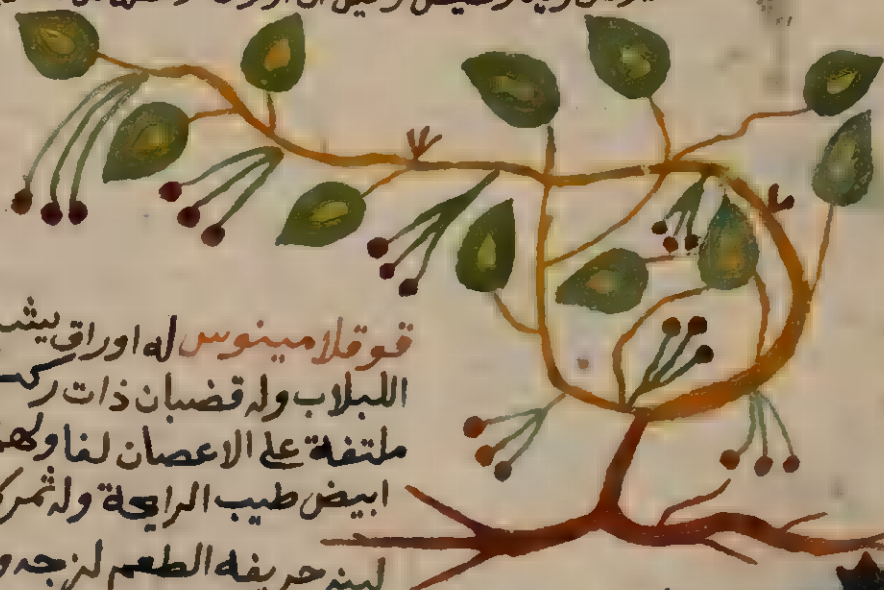 قوقلامينوس له اوراق يشبـ
اللبلاب وله قضبان ذات ركـ
ملتفة على الاعصان لفا ولهـ
ابيض طيب الرايحة وله ثمر كـ
لينه حريفه الطعم لزجه و